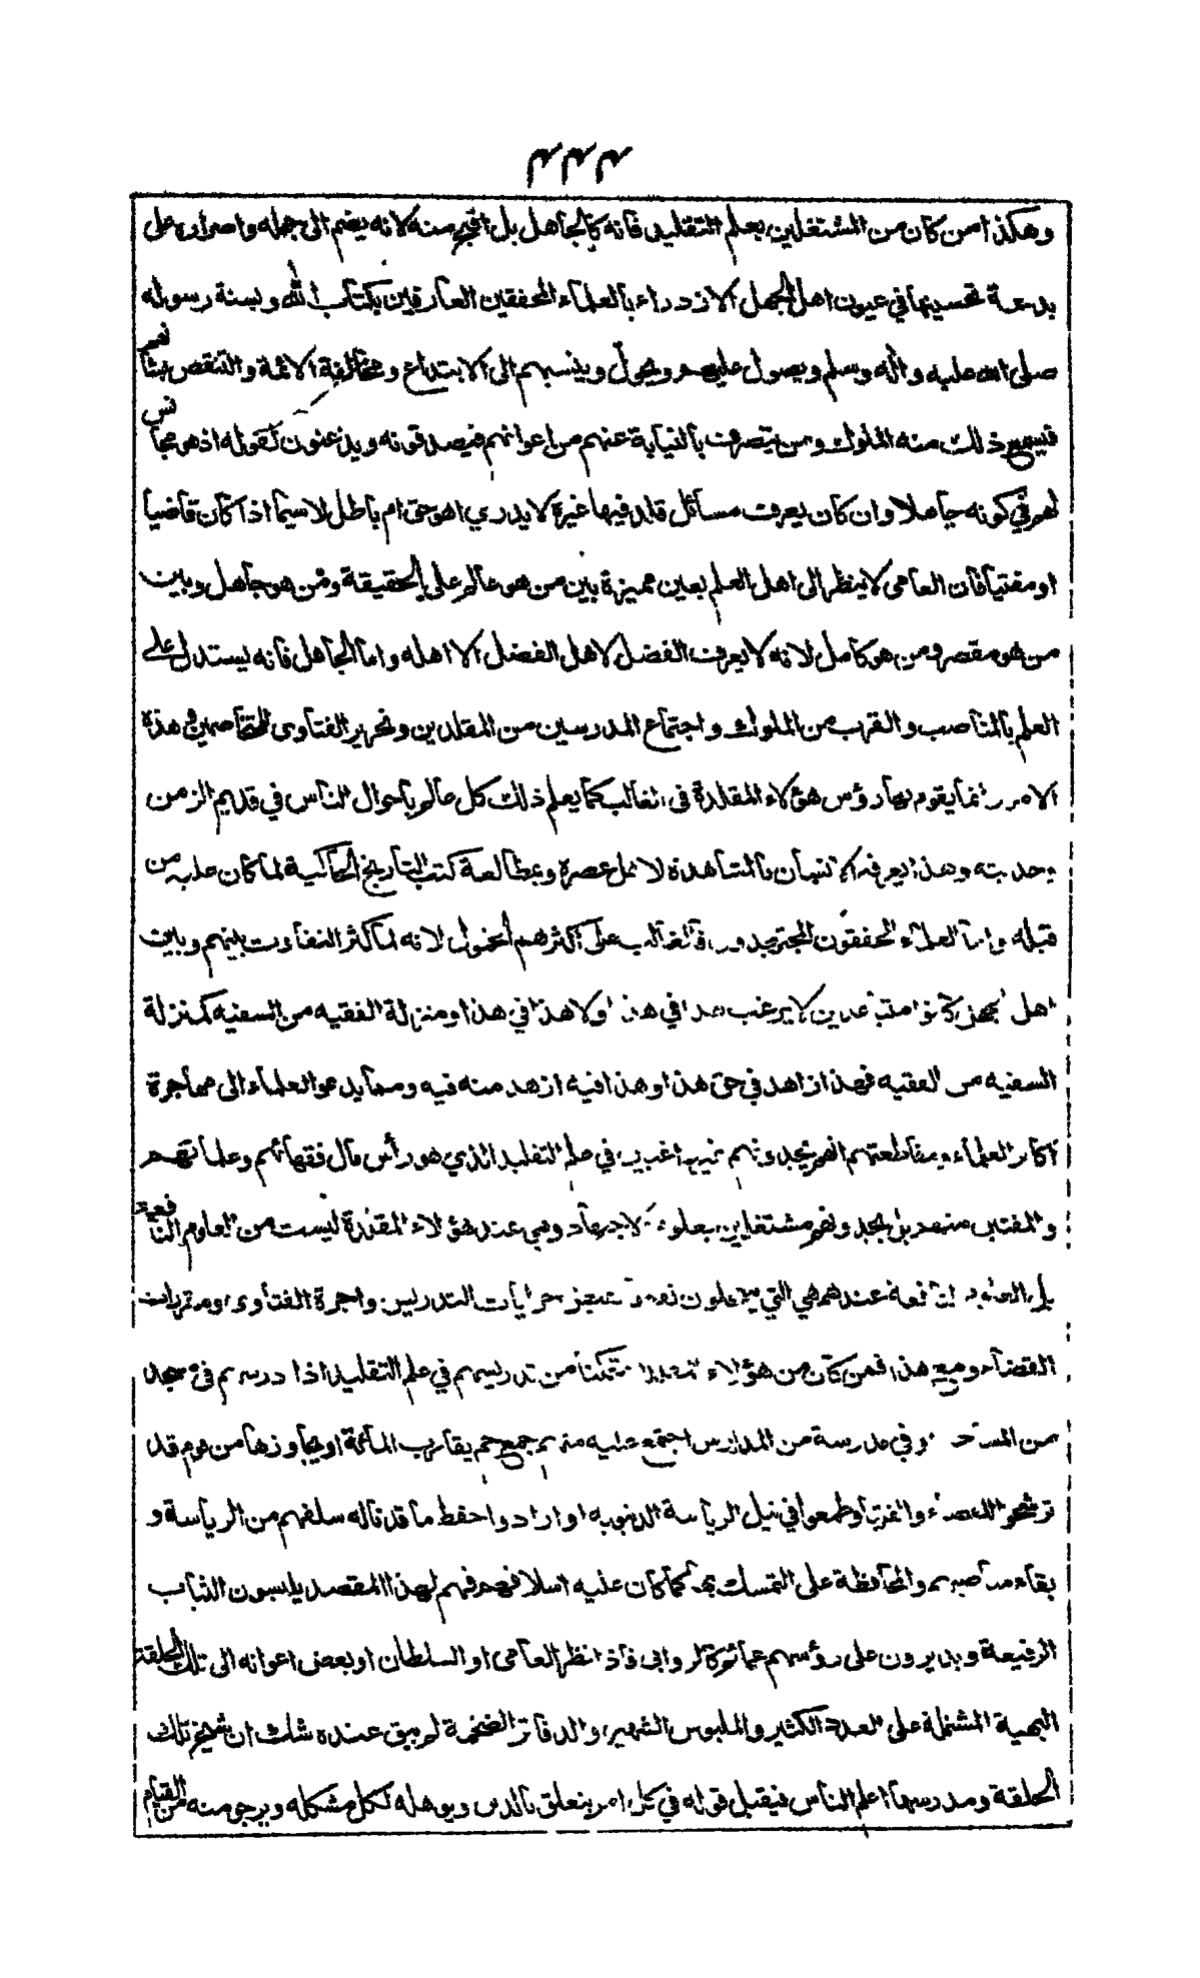 ٢٢٢
وهكذا من كان من المشتغلين بعلم التقليد فانه كالجاهل بل اقبح منه لانه يضم الى جهله واصراره على
بدعة تحسينها في عيون اهل الجهل الازدراء بالعلماء المحققين العارفين بكتاب الله وبسنة رسوله
صلى الله عليه واله وسلم ويصول عليهم ويجول وينسبهم الى الابتداع ومخالفة الائمة والتنقص بشأنهم
فيسمع ذلك منه الملوك ومن يتصرف بالنيابة عنهم من اعوانهم فيصدقونه ويذعنون لقوله اذ هو مجانس
لهم في كونه جاهلا وان كان يعرف مسائل قلد فيها غيره لا يدري اهو حق ام باطل لا سيما اذا كان قاضيا
او مفتيا فان العامي لا ينظر الى اهل العلم بعين مميزة بين من هو عالم على الحقيقة ومن هو جاهل وبين
من هو مقصر ومن هو كامل لانه لا يعرف الفضل لاهل الفضل الا اهله واما الجاهل فانه يستدل على
العلم بالمناصب والقرب من الملوك واجتماع المدرسين من المقلدين وتحرير الفتاوى للمتخاصمين وهذه
الامور انما يقوم بها رؤس هؤلاء المقلدة في الغالب كما يعلم ذلك كل عالم باحوال الناس في قديم الزمن
وحديثه وهذا يعرفه الانسان بالمشاهدة لاهل عصره وبمطالعة كتب التاريخ الحاكية لما كان عليه من
قبله واما العلماء المحققون المجتهدون فالغالب على اكثرهم الخمول لانه لما كثر التفاوت بينهم وبين
اهل الجهل كانوا متباعدين لا يرغب هذا في هذا ولا هذا في هذا ومنزلة الفقيه من السفيه كمنزلة
السفيه من الفقيه فهذا زاهد في حق هذا وهذا فيه ازهد منه فيه ومما يدعو العلماء الى مهاجرة
اكابر العلماء ومقاطعتهم انهم يجدونهم غير راغبين في علم التقليد الذي هو رأس مال فقهائهم وعلمائهم
والمفتين منهم بل يجدونهم مشتغلين بعلوم الاجتهاد وهي عند هؤلاء المقلدة ليست من العلوم النافعة
بل العلوم النافعة عندهم هي التي يتعجلون نفعها بقبض جرايات التدريس واجرة الفتاوى ومقررات
القضاء ومع هذا فمن كان من هؤلاء المقلدة متمكنا من تدريسهم في علم التقليد اذا درسهم في مسجد
من المساجد او في مدرسة من المدارس اجتمع عليه منهم جمع جم يقارب المائة او يجاوزها من قوم قد
ترشحوا للقضاء والفتيا وطمعوا في نيل الرياسة الدنيوية او ارادوا حفظ ما قد ناله سلفهم من الرياسة و
بقاء مناصبهم والمحافظة على التمسك بها كما كان عليه اسلافهم فهم لهذا المقصد يلبسون الثياب
الرفيعة ويديرون على رؤسهم عمائم كالروابي فاذا نظر العامي او السلطان او بعض اعوانه الى تلك الحلقة
البهية المشتملة على العدد الكثير والملبوس الشهير والدفاتر الضخمة لم يبق عنده شك ان شيخ تلك
الحلقة ومدرسها اعلم الناس فيقبل قوله في كل امر يتعلق بالدين ويؤهله لكل مشكلة ويرجو منه من القيام